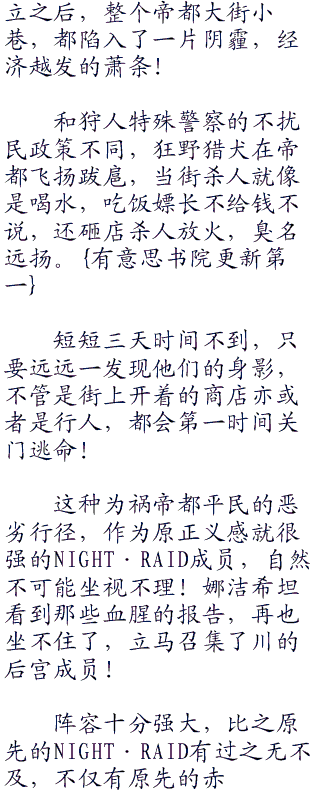 立之后，整个帝都大街小
巷，都陷入了一片阴霾，经
济越发的萧条！
和狩人特殊警察的不扰
民政策不同，狂野猎犬在帝
都飞扬跋扈，当街杀人就像
是喝水，吃饭嫖长不给钱不
说，还砸店杀人放火，臭名
远扬。{有意思书院更新第
一}
短短三天时间不到，只
要远远一发现他们的身影，
不管是街上开着的商店亦或
者是行人，都会第一时间关
门逃命！
这种为祸帝都平民的恶
劣行径，作为原正义感就很
强的NIGHT·RAID成员，自然
不可能坐视不理！娜洁希坦
看到那些血腥的报告，再也
坐不住了，立马召集了川的
后宫成员！
阵容十分强大，比之原
先的NIGHT·RAID有过之无不
及，不仅有原先的赤